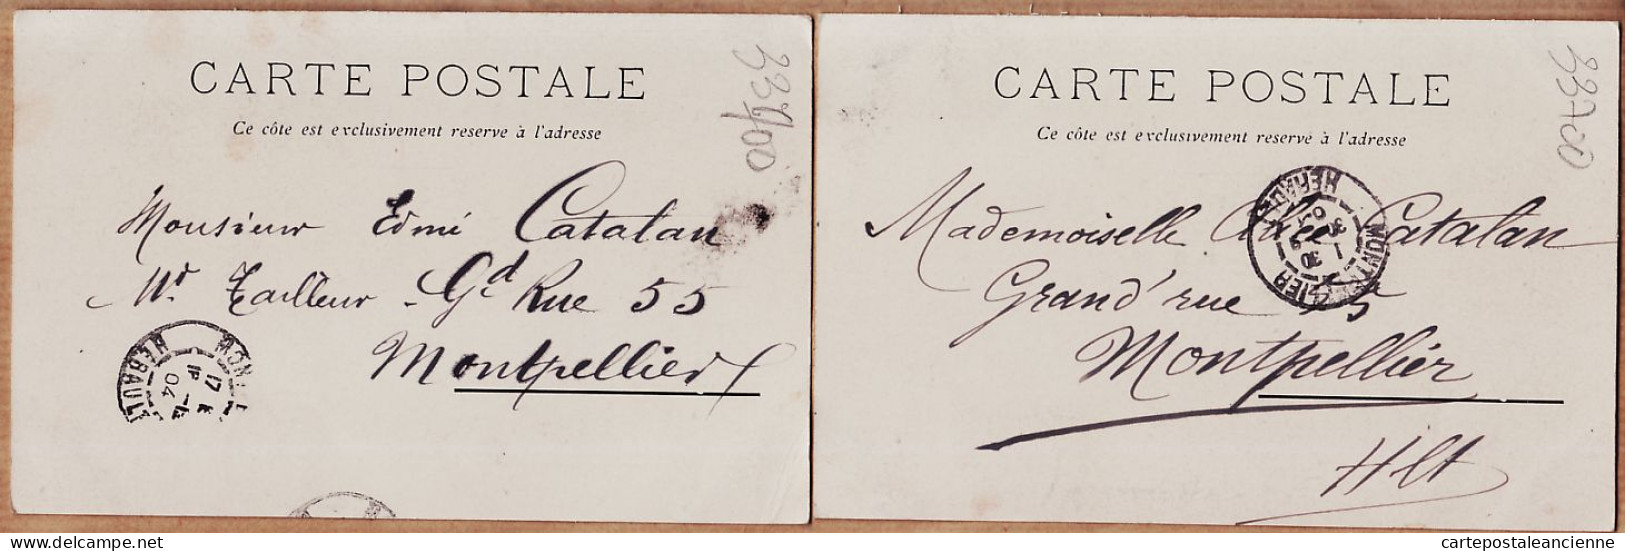 CARTE POSTALE
Ce côte est exclusivement reserve à l'adresse
Monsieur Edmé Catalan
Md Tailleur Gd Rue 55
Montpellier
MON
HERAULT
17
04
33700
CARTE POSTALE
Ce côte est exclusivement reserve à l'adresse
Mademoiselle Catalan
Grand' rue 55
Montpellier
Hlt
MONTPELLIER
HERAULT
33700
cartepostaleancienne
delcampe.net
cartepostaleancienne